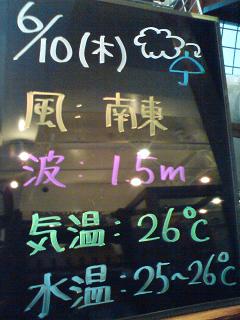 6/10(木)
風:南東
波:15m
気温:26℃
水温:25~26℃